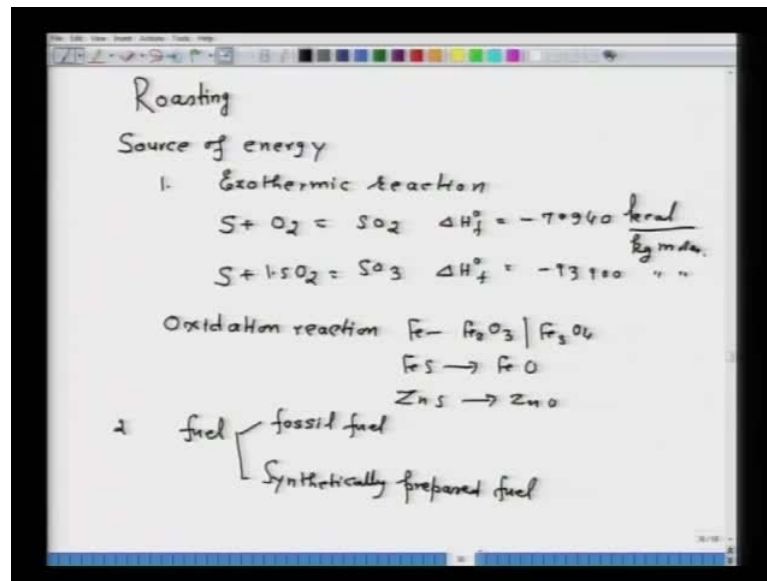 Roasting
Source of energy
1. Exothermic reaction
S + O2 = SO2 ΔH°f = - 70940 kcal / kg mole.
S + 1.5O2 = SO3 ΔH°f = - 93900 " "
Oxidation reaction Fe - Fe2O3 | Fe3O4
FeS → FeO
ZnS → ZnO
2 fuel fossil fuel
Synthetically prepared fuel